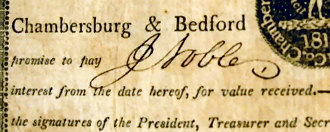 Chambersburg & Bedford
promise to pay J Noble
interest from the date hereof, for value received.
the signatures of the President, Treasurer and Secr
Chambe
181